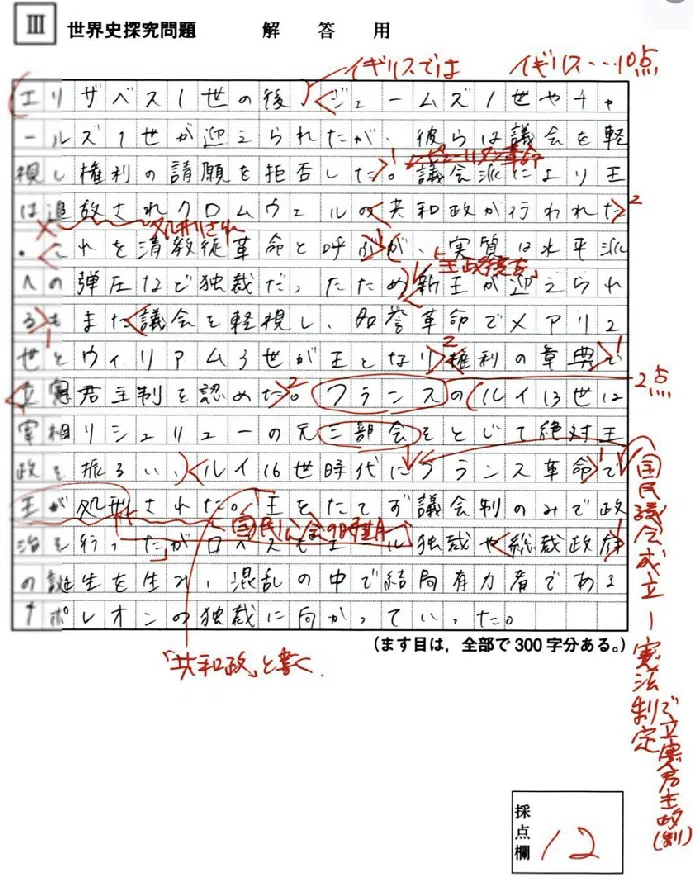 III 世界史探究問題 解答用
イギリスでは イギリス…10点
エリザベス1世の後、ジェームズ1世やチャ
ールズ1世が迎えられたが、彼らは議会を軽
ピューリタン革命
視し権利の請願を拒否した。議会派により王
は追放されクロムウェルの共和政が行われた
処刑され
。これを清教徒革命と呼ぶが、実質は水平派
「王政復古」
への弾圧など独裁だったため新王が迎えられ
るもまた議会を軽視し、名誉革命でメアリ2
世とウィリアム3世が王となり権利の章典で
立憲君主制を認めた。フランスのルイ13世は
2点
宰相リシュリューの元三部会をとじて絶対王
政を振るい、ルイ16世時代にフランス革命で
王が処刑された。王をたてず議会制のみで政
国民公会の時期
治を行ったがロベスピエール独裁や総裁政府
の誕生を生み、混乱の中で結局有力者である
ナポレオンの独裁に向かっていった。
(ます目は，全部で300字分ある。)
「共和政」と書く
国民議会成立ー憲法制定
で立憲君主政(制)
採点欄
12